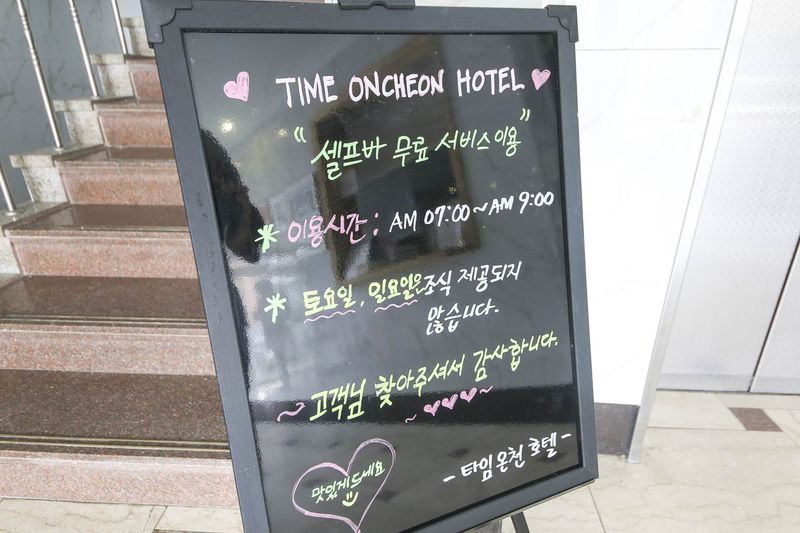 TIME ONCHEON HOTEL
"셀프바 무료 서비스 이용"
* 이용시간 : AM 07:00 ~ AM 9:00
* 토요일, 일요일은 조식 제공되지
않습니다.
~ 고객님 찾아주셔서 감사합니다.
맛있게 드세요
- 타임 온천 호텔 -